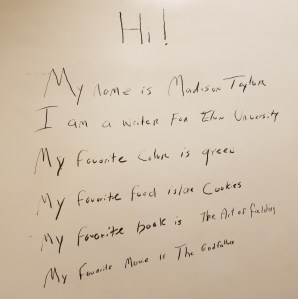 Hi!
My name is Madison Taylor
I am a writer for Elon University
My Favorite Color is green
My Favorite food is/are Cookies
My favorite book is The Art of Fielding
My Favorite Movie is The Godfather